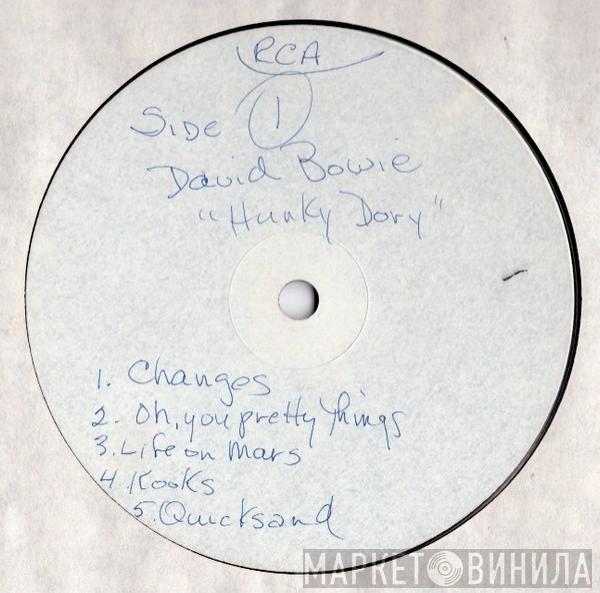 RCA
Side 1
David Bowie
"Hunky Dory"
1. Changes
2. Oh, you pretty things
3. Life on Mars
4. Kooks
5. Quicksand
МАРКЕТ ВИНИЛА